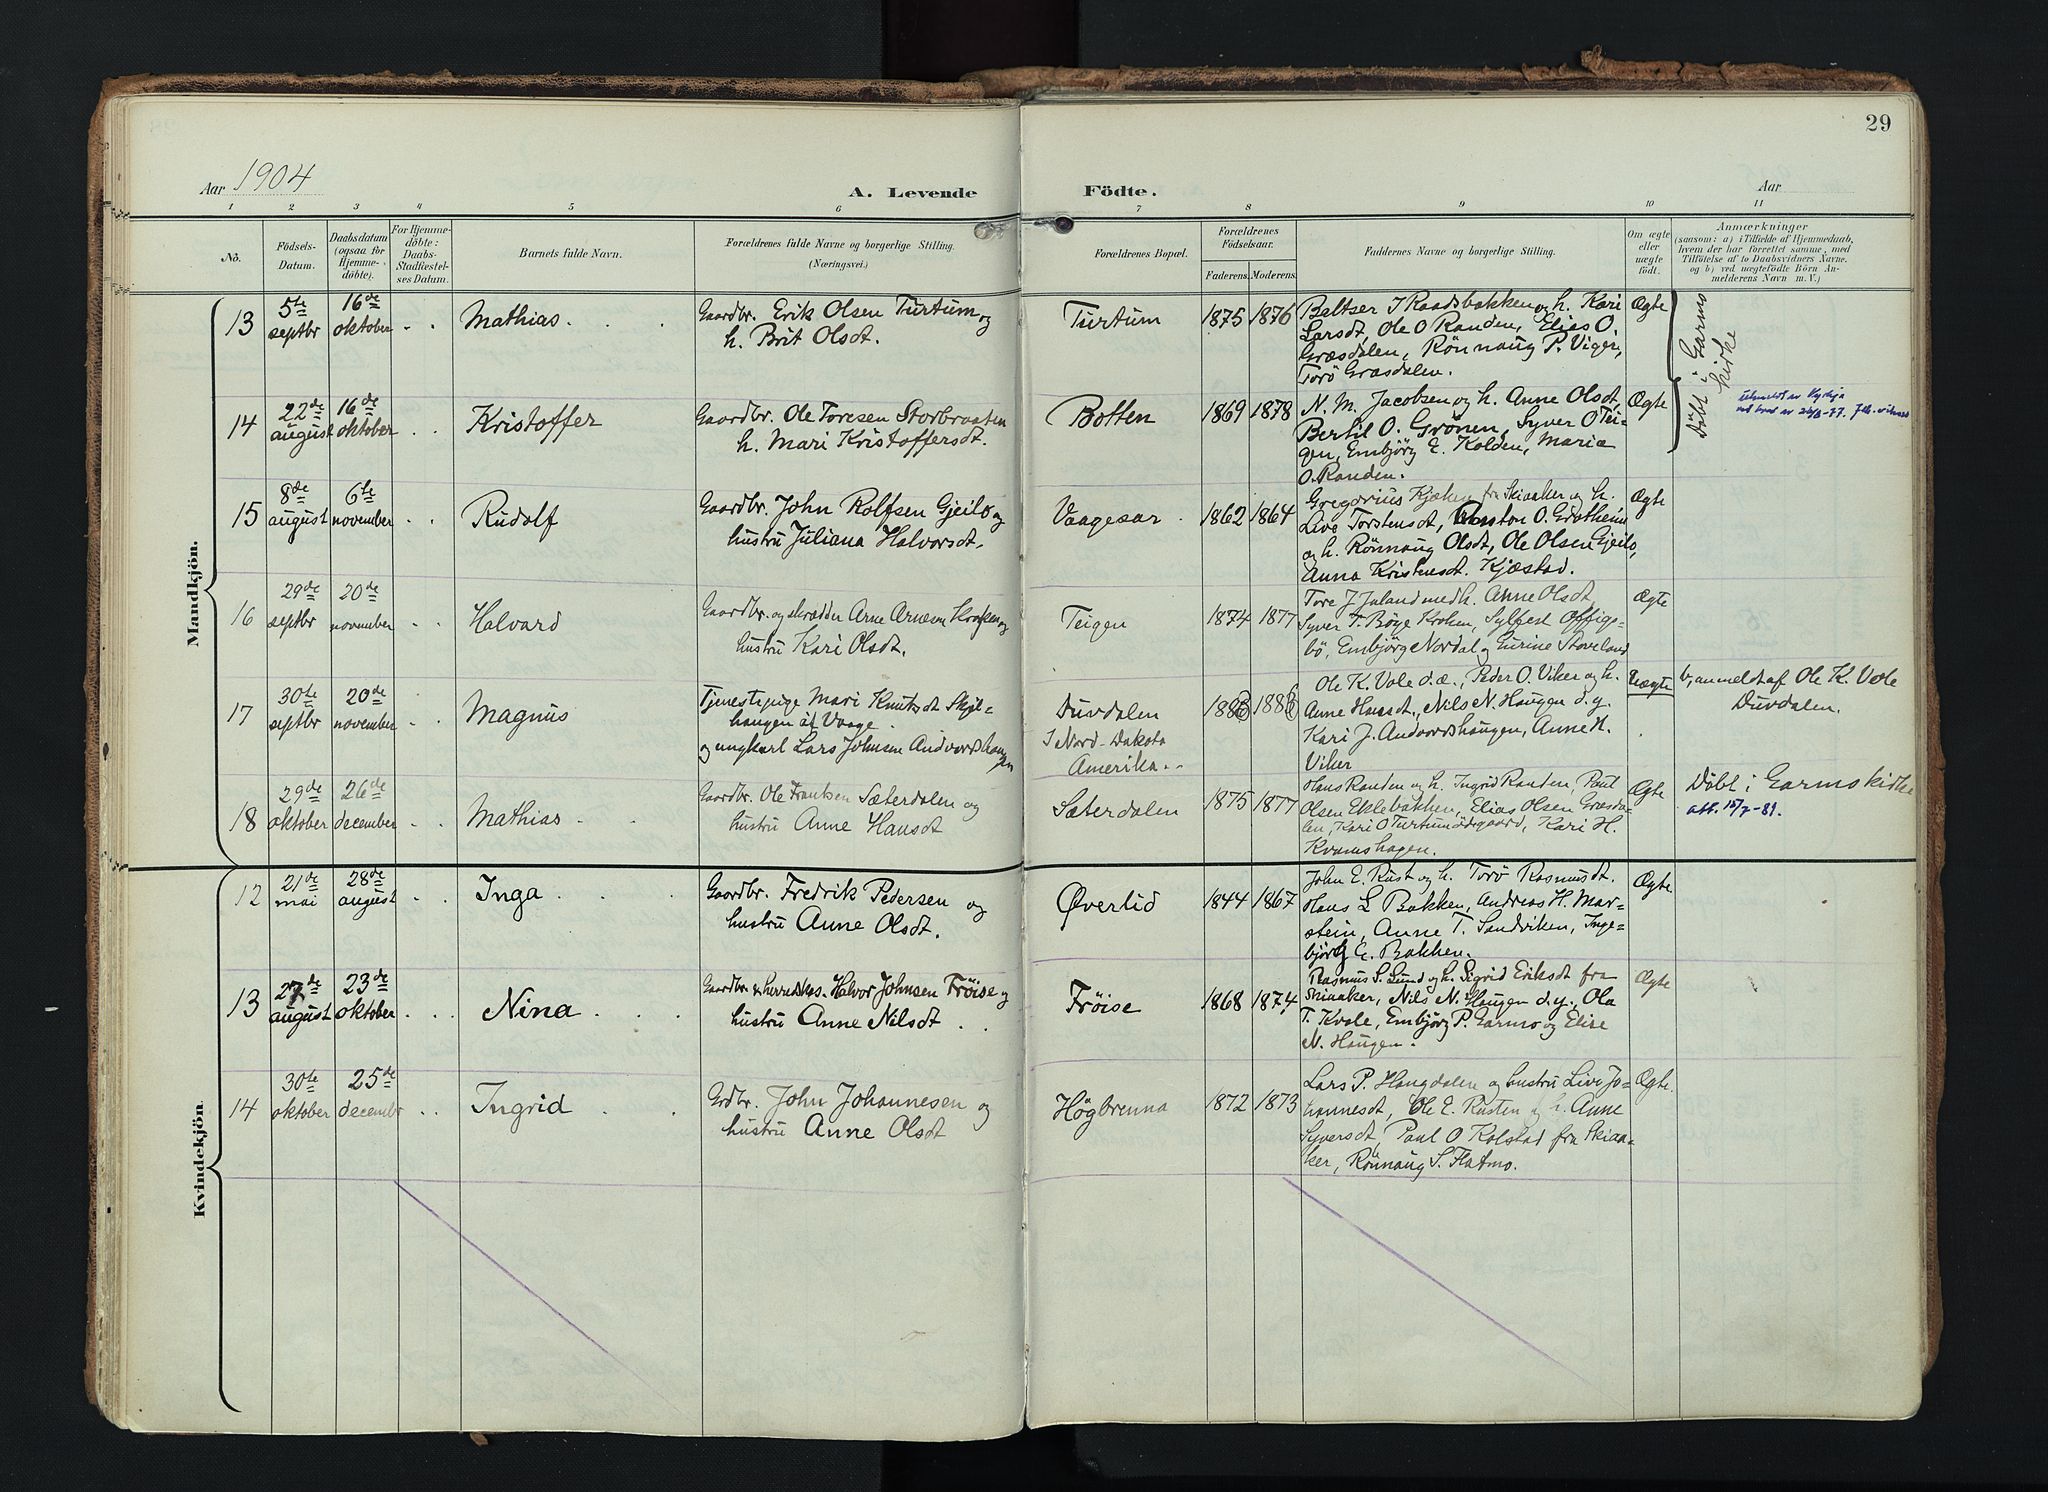 29
Aar 1904
A. Levende Födte.
Aar
1 2 3 4 5 6 7 8 9 10 11
No.
Födsels-
Datum.
Daabsdatum
(ogsaa for
Hjemme-
döbte).
For Hjemme-
döbte:
Daabs-
Stadfæstel-
ses Datum.
Barnets fulde Navn.
Forældrenes fulde Navne og borgerlige Stilling.
(Næringsvei.)
Forældrenes Bopæl.
Forældrenes
Födselsaar.
Faderens. Moderens.
Faddernes Navne og borgerlige Stilling.
Om ægte
eller
uægte
födt.
Anmærkninger
(saasom: a) i Tilfælde af Hjemmedaab,
hvem der har forrettet samme, med
Tilföielse af to Daabsvidners Navne.
og b) ved uægtefödte Börn An-
melderens Navn m. V.)
Mandkjön.
13
5te
septbr
16de
oktober
Mathias
Gaardbr. Erik Olsen Turtum og
h. Brit Olsdt.
Turtum
1875 1876
Baltser J Raadsbakken og h. Kari
Larsdt, Ole O Randen, Elias O.
Græsdalen, Rönnaug P. Viger,
Torö Græsdalen.
Ægte
Döbt i Garmo
kirke
14
22de
august
16de
oktober
Kristoffer
Gaardbr. Ole Toresen Storbraaten
h. Mari Kristoffersdt.
Botten
1869 1878
N. M. Jacobsen og h. Anne Olsdt,
Bertil O. Grönen, Syver O Tei-
gen, Embjörg E. Kolden, Maria
O. Randen.
Ægte
15
8de
august
6te
november
Rudolf
Gaardbr. John Rolfsen Gjeilo og
hustru Juliana Halvorsdt.
Vaagesar
1862 1864
Gregorius Kjæken fra Skiaaker og h.
Live Torstensdt, O. Grotheim
og h. Rönnaug Olsdt, Ole Olsen Gjeilo,
Anna Kristensdt. Kjæstad.
Ægte
16
29de
septbr
20de
november
Halvard
Gaardbr. og skrædder Arne Arnesen og
hustru Kari Olsdt.
Teigen
1874 1877
Tore J Juland med h. Anne Olsdt
Syver T. Böye Krohen, Sylfest Offigs-
bö, Embjörg Nordal og Gurine Stoveland
Ægte
17
30te
septbr
20de
november
Magnus
Tjenestepige Mari Knutsdt Skjel-
haugen af Vaage
og ungkarl Lars Johnsen Andvordshaugen
Duvdalen
I Nord-Dakota
Amerika.
Ole K. Vole d.æ., Peder O. Viker og h.
Anne Hansdt., Nils N. Haugen d.y.
Kari J. Andvordshaugen, Anne H.
Viker
Uægte
b, anmeldt af Ole K. Vole
Duvdalen.
18
29de
oktober
26de
december
Mathias
Gaardbr. Ole Frantsen Sæterdalen og
hustru Anne Hansdt
Sæterdalen
1875 1877
Hans Randen og h. Ingrid Randen, Paul
Olsen Eklebakken, Elias Olsen Græsda-
len, Kari O Turtumödegaard, Kari H.
Kvamshagen.
Ægte
Döbt i Garmo kirke
att. 15/7-81.
Kvindekjön.
12
21de
mai
28de
august
Inga
Gaardbr. Fredrik Pedersen og
hustru Anne Olsdt.
Øverlid
1844 1867
John E. Rust og h. Torö Rasmusdt.
Hans L Bakken, Andreas H. Mar-
stein, Anne T. Sandviken, Inge-
björg E. Bakken.
Ægte
13
27de
august
23de
oktober
Nina
Gaardbr. Halvor Johnsen Fröise og
hustru Anne Nilsdt
Fröise
1868 1874
Rasmus S. Lund og h. Sigrid Eriksdt fra
Skiaaker, Nils N. Haugen d.y. Ola
T. Kvale, Embjörg P. Garmo og Elise
N. Haugen.
Ægte
14
30te
oktober
25de
decembr
Ingrid
Grdbr. John Johannesen og
hustru Anne Olsdt
Högbrenna
1872 1873
Lars P. Haugdalen og hustru Livi Jo-
hannesdt, Ole E. Rusten og h. Anne
Syversdt, Paul O Kolstad fra Skiaa-
ker, Rönnaug S. Flatmo.
Ægte